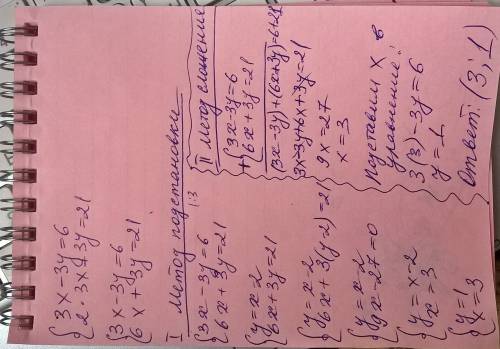 {3x-3y=6
{2·3x+3y=21
{3x-3y=6
{6x+3y=21
I Метод подстановки
{3x-3y=6 |:3
{6x+3y=21
{y=x-2
{6x+3y=21
{y=x-2
{6x+3(y-2)=21
{y=x-2
{9x-27=0
{y=x-2
{x=3
{y=1
{x=3
II метод сложение
+{3x-3y=6
{6x+3y=21
(3x-3y)+(6x+3y)=6+21
3x-3y+6x+3y=21
9x=27
x=3
Подставим x в
уравнение:
3(3)-3y=6
y=1
Ответ: (3;1)